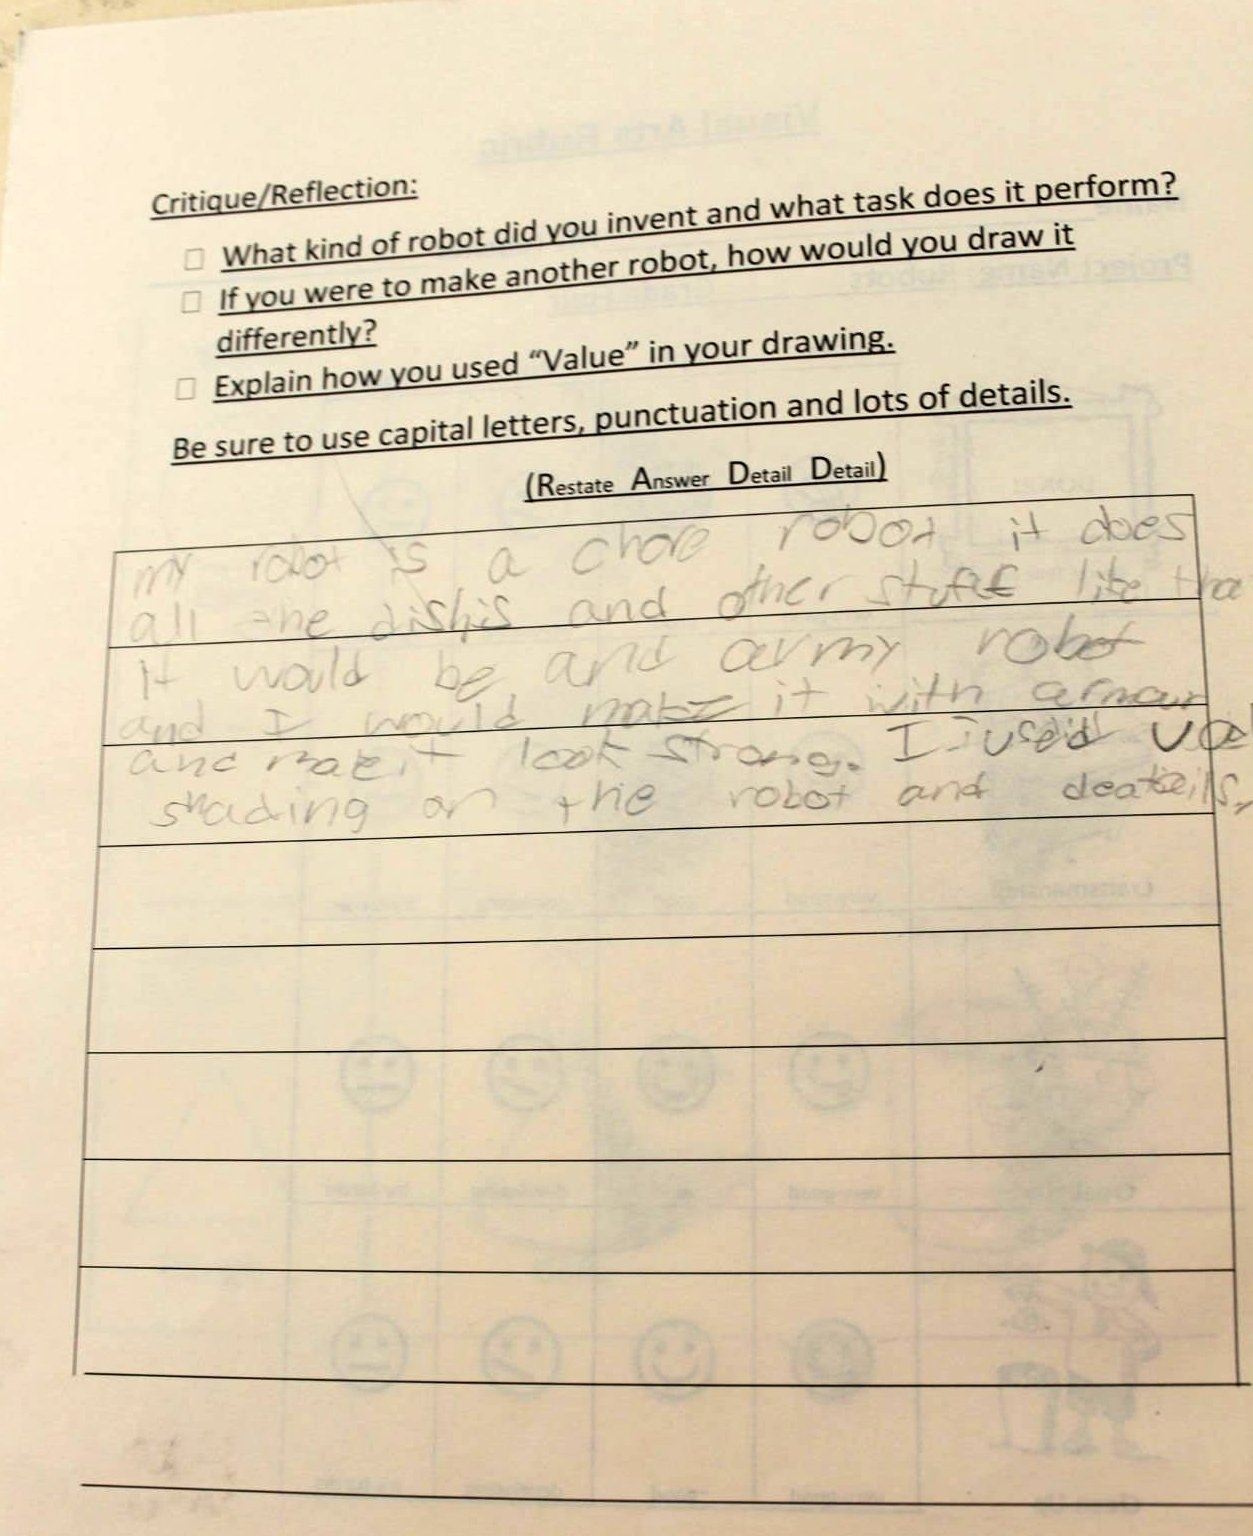 Critique/Reflection:
□ What kind of robot did you invent and what task does it perform?
□ If you were to make another robot, how would you draw it
differently?
□ Explain how you used “Value” in your drawing.
Be sure to use capital letters, punctuation and lots of details.
(Restate Answer Detail Detail)
my robot is a chore robot it does
all the dishis and other stuff like tha
it would be and army robot
and I would make it with armour
and make it look strong. I used val
shading on the robot and deateils,